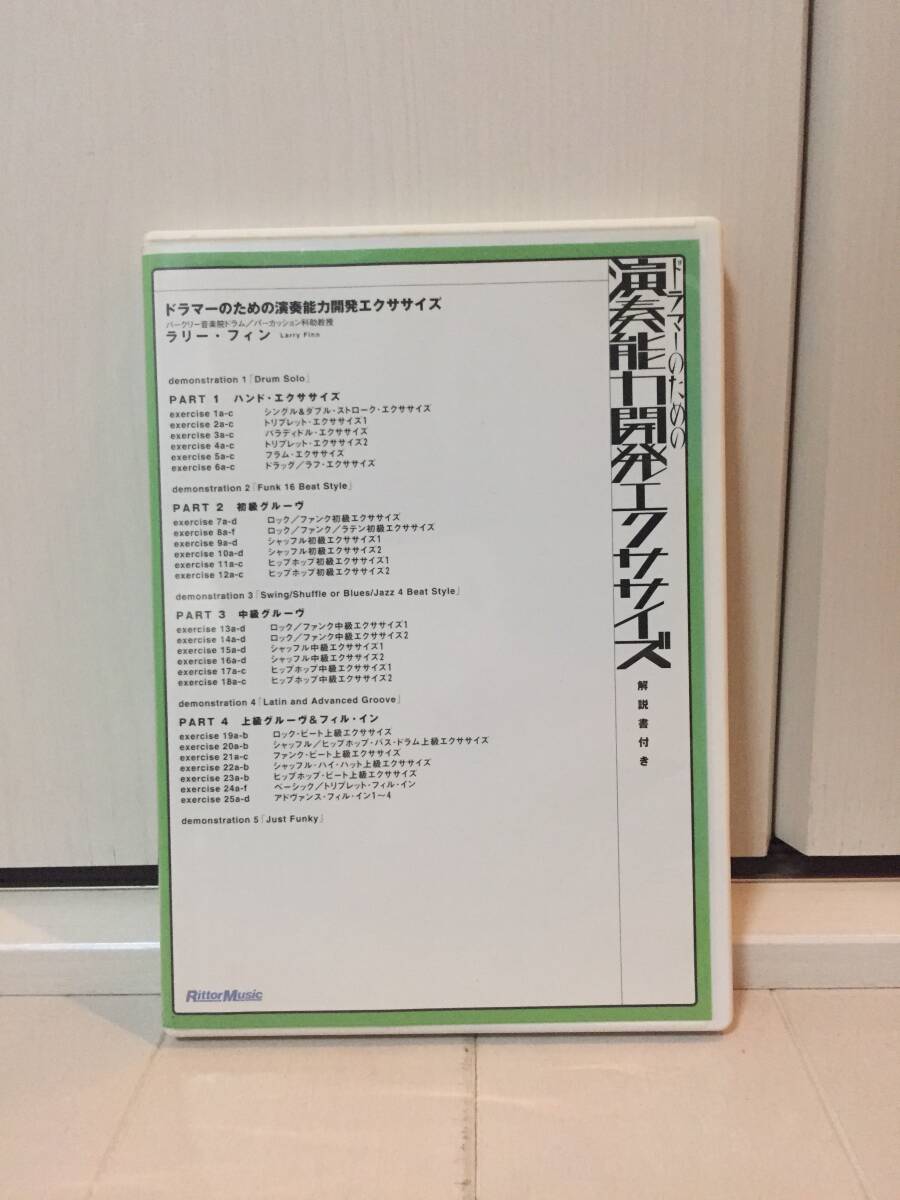 ドラマーのための
演奏能力開発エクササイズ
解説書付き
ドラマーのための演奏能力開発エクササイズ
バークリー音楽院ドラム／パーカッション科助教授
ラリー・フィン Larry Finn
demonstration 1「Drum Solo」
PART 1 ハンド・エクササイズ
exercise 1a-c シングル&ダブル・ストローク・エクササイズ
exercise 2a-c トリプレット・エクササイズ1
exercise 3a-c パラディドル・エクササイズ
exercise 4a-c トリプレット・エクササイズ2
exercise 5a-c フラム・エクササイズ
exercise 6a-c ドラッグ／ラフ・エクササイズ
demonstration 2「Funk 16 Beat Style」
PART 2 初級グルーヴ
exercise 7a-d ロック／ファンク初級エクササイズ
exercise 8a-f ロック／ファンク／ラテン初級エクササイズ
exercise 9a-d シャッフル初級エクササイズ1
exercise 10a-d シャッフル初級エクササイズ2
exercise 11a-c ヒップホップ初級エクササイズ1
exercise 12a-c ヒップホップ初級エクササイズ2
demonstration 3「Swing/Shuffle or Blues/Jazz 4 Beat Style」
PART 3 中級グルーヴ
exercise 13a-d ロック／ファンク中級エクササイズ1
exercise 14a-d ロック／ファンク中級エクササイズ2
exercise 15a-d シャッフル中級エクササイズ1
exercise 16a-d シャッフル中級エクササイズ2
exercise 17a-c ヒップホップ中級エクササイズ1
exercise 18a-c ヒップホップ中級エクササイズ2
demonstration 4「Latin and Advanced Groove」
PART 4 上級グルーヴ&フィル・イン
exercise 19a-b ロック・ビート上級エクササイズ
exercise 20a-b シャッフル／ヒップホップ・バス・ドラム上級エクササイズ
exercise 21a-c ファンク・ビート上級エクササイズ
exercise 22a-b シャッフル・ハイ・ハット上級エクササイズ
exercise 23a-b ヒップホップ・ビート上級エクササイズ
exercise 24a-f ベーシック／トリプレット・フィル・イン
exercise 25a-d アドヴァンス・フィル・イン1〜4
demonstration 5「Just Funky」
RittorMusic